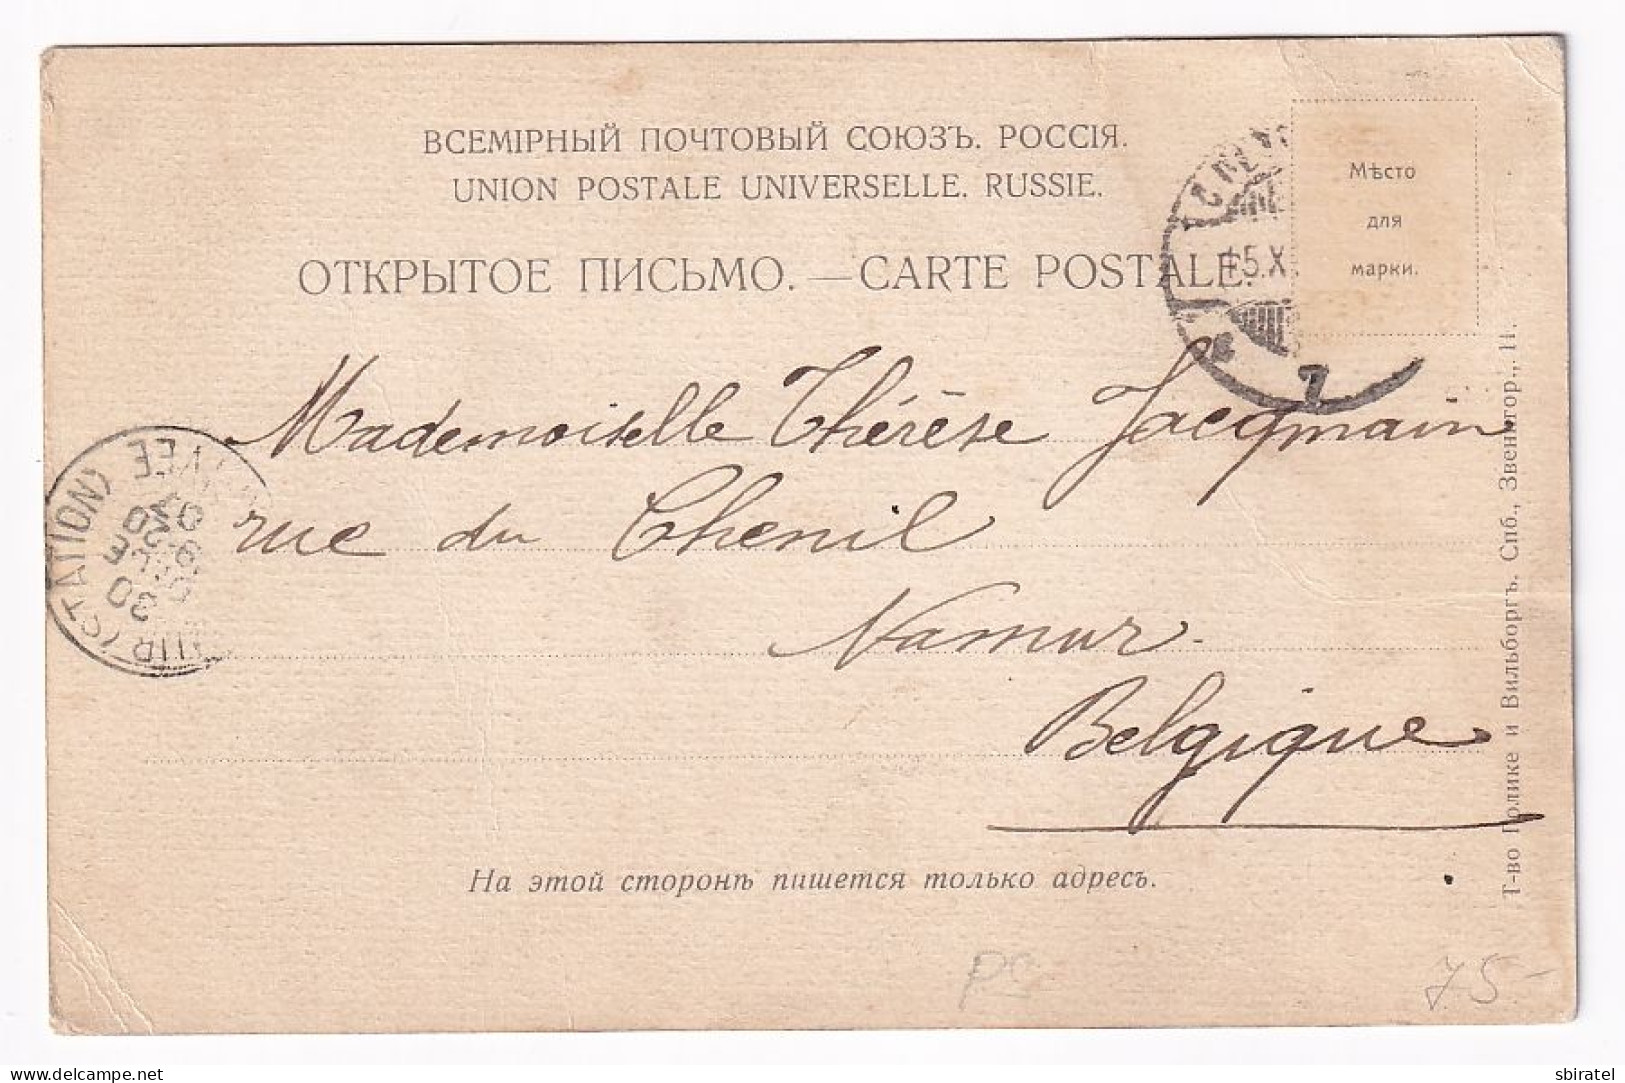 ВСЕМІРНЫЙ ПОЧТОВЫЙ СОЮЗЪ. РОССІЯ.
UNION POSTALE UNIVERSELLE. RUSSIE.
ОТКРЫТОЕ ПИСЬМО. — CARTE POSTALE.
Мѣсто
для
марки.
5.X
7
Mademoiselle Thérèse Jacqmain
rue du Chenil
Namur.
Belgique
(STATION)
На этой сторонѣ пишется только адресъ.
Т-во Голике и Вильборгъ. Спб., Звенигор., 11.
75-
sbiratel